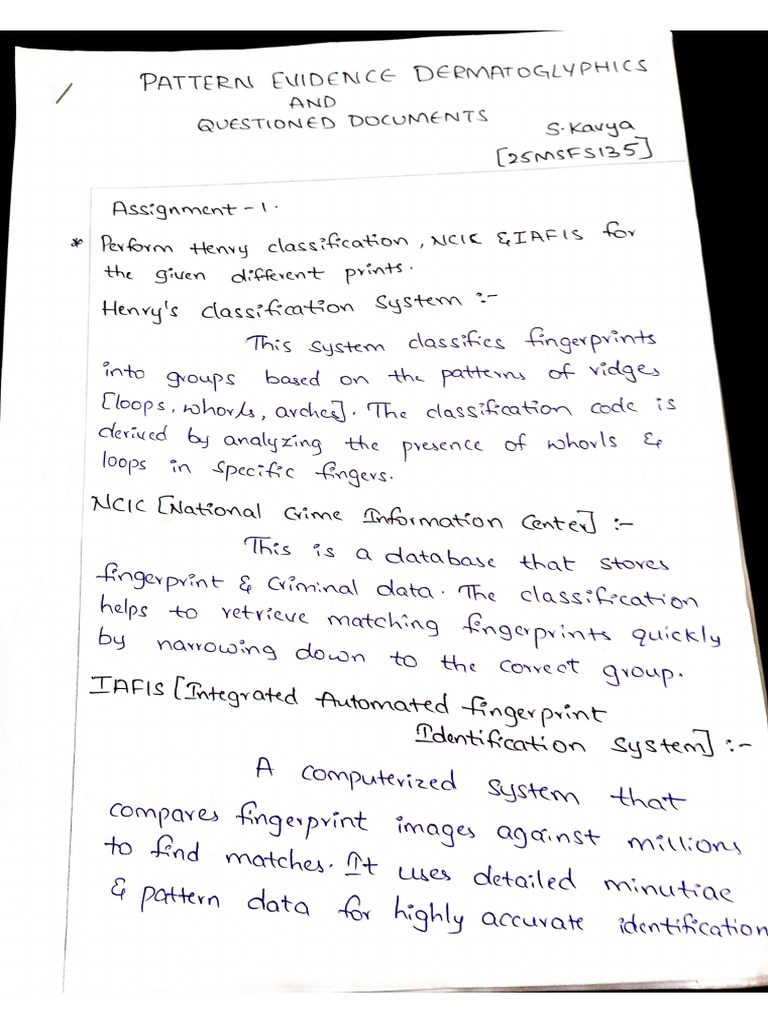 PATTERN EVIDENCE DERMATOGLYPHICS
AND
QUESTIONED DOCUMENTS
S.Kavya
[25MSFS135]
Assignment-1.
* Perform Henry classification, NCIC & IAFIS for
the given different prints.
Henry's classification system :-
This system classifies fingerprints
into groups based on the patterns of ridges
[loops, whorls, arches]. The classification code is
derived by analyzing the presence of whorls &
loops in specific fingers.
NCIC [National Crime Information Center] :-
This is a database that stores
fingerprint & criminal data. The classification
helps to retrieve matching fingerprints quickly
by narrowing down to the correct group.
IAFIS [Integrated Automated fingerprint
Identification system] :-
A computerized system that
compares fingerprint images against millions
to find matches. It uses detailed minutiae
& pattern data for highly accurate identification